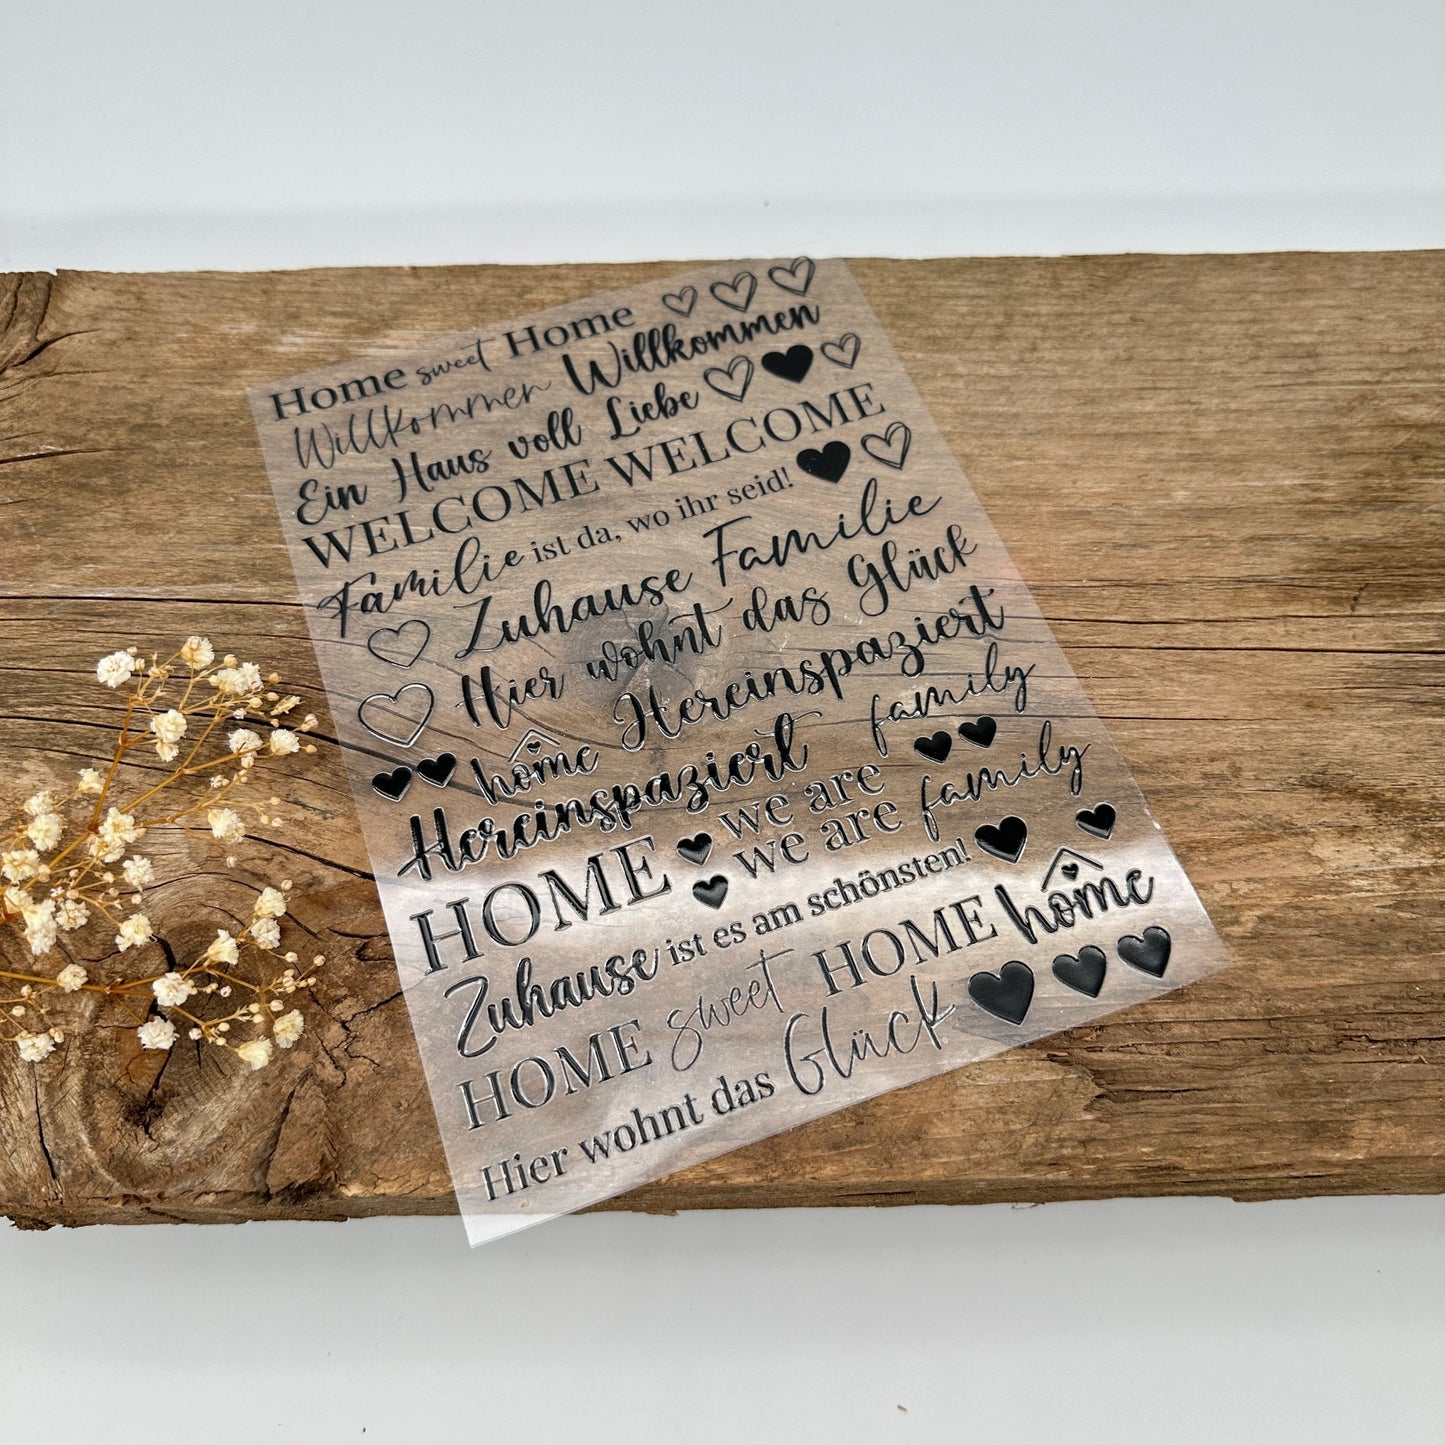 Home sweet Home
Willkommen Willkommen
Ein Haus voll Liebe
WELCOME WELCOME
Familie ist da, wo ihr seid!
Zuhause Familie
Hier wohnt das Glück
home Hereinspaziert
Hereinspaziert we are family
HOME we are family
Zuhause ist es am schönsten!
HOME sweet HOME home
Hier wohnt das Glück